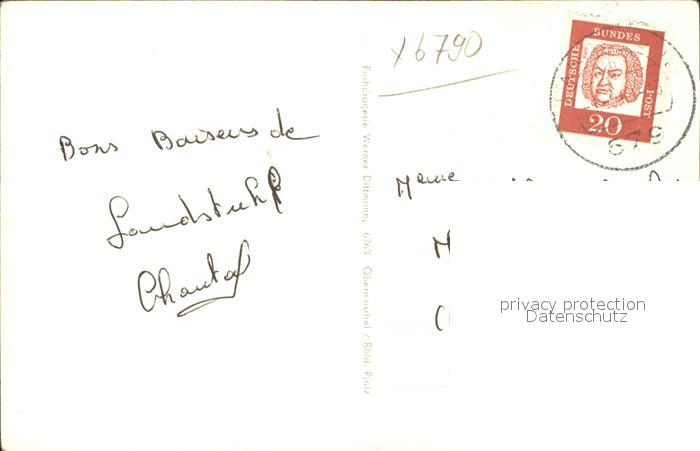 x6790
DEUTSCHE
BUNDES
POST
20
679
Bons Baisers de
Landstuhl
Chantal
Frohdrogerie Werner Dittmann, 6763 Obermoschel / Rhld.-Pfalz
M
C
privacy protection
Datenschutz